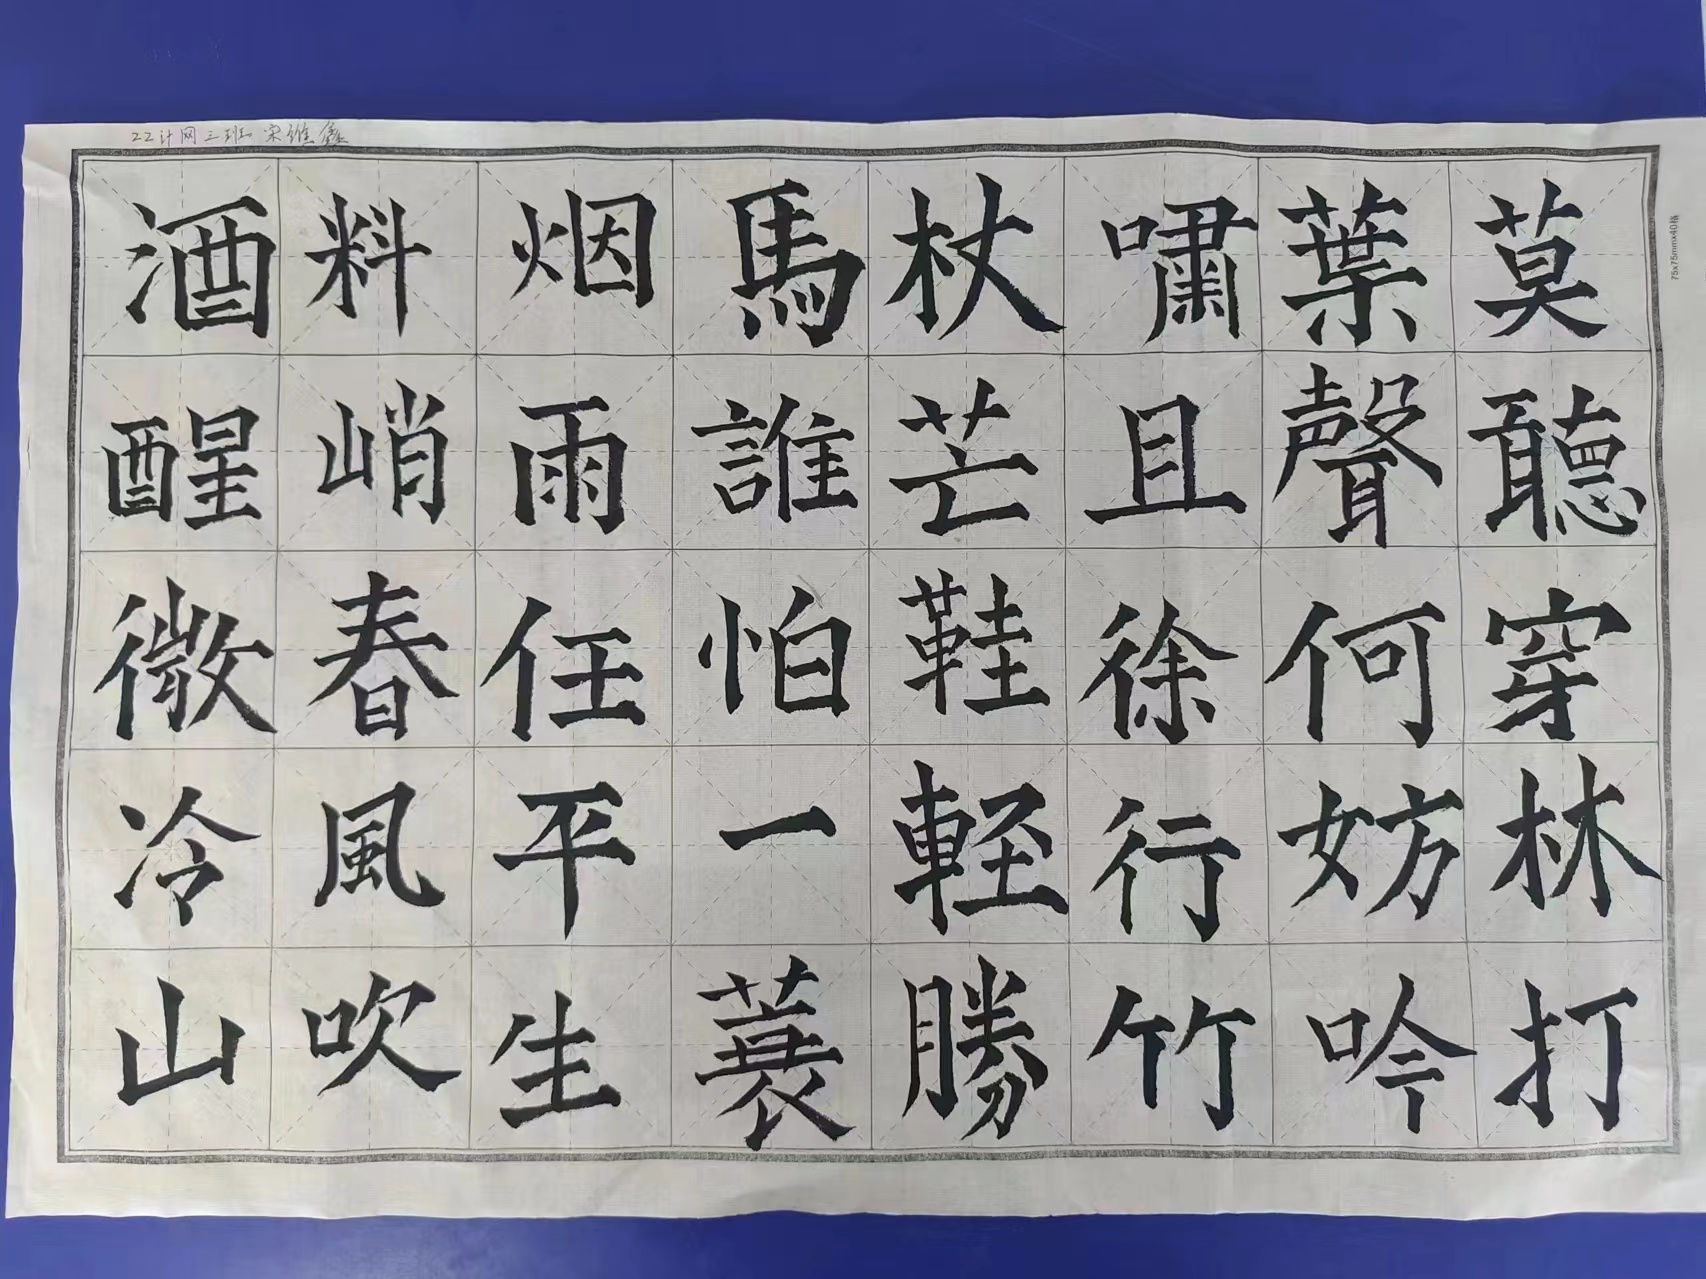 22计网三班 宋维鑫
莫聽穿林打
葉聲何妨吟
嘯且徐行竹
杖芒鞋輕勝
馬誰怕一蓑
烟雨任平生
料峭春風吹
酒醒微冷山
75x75mmx40格